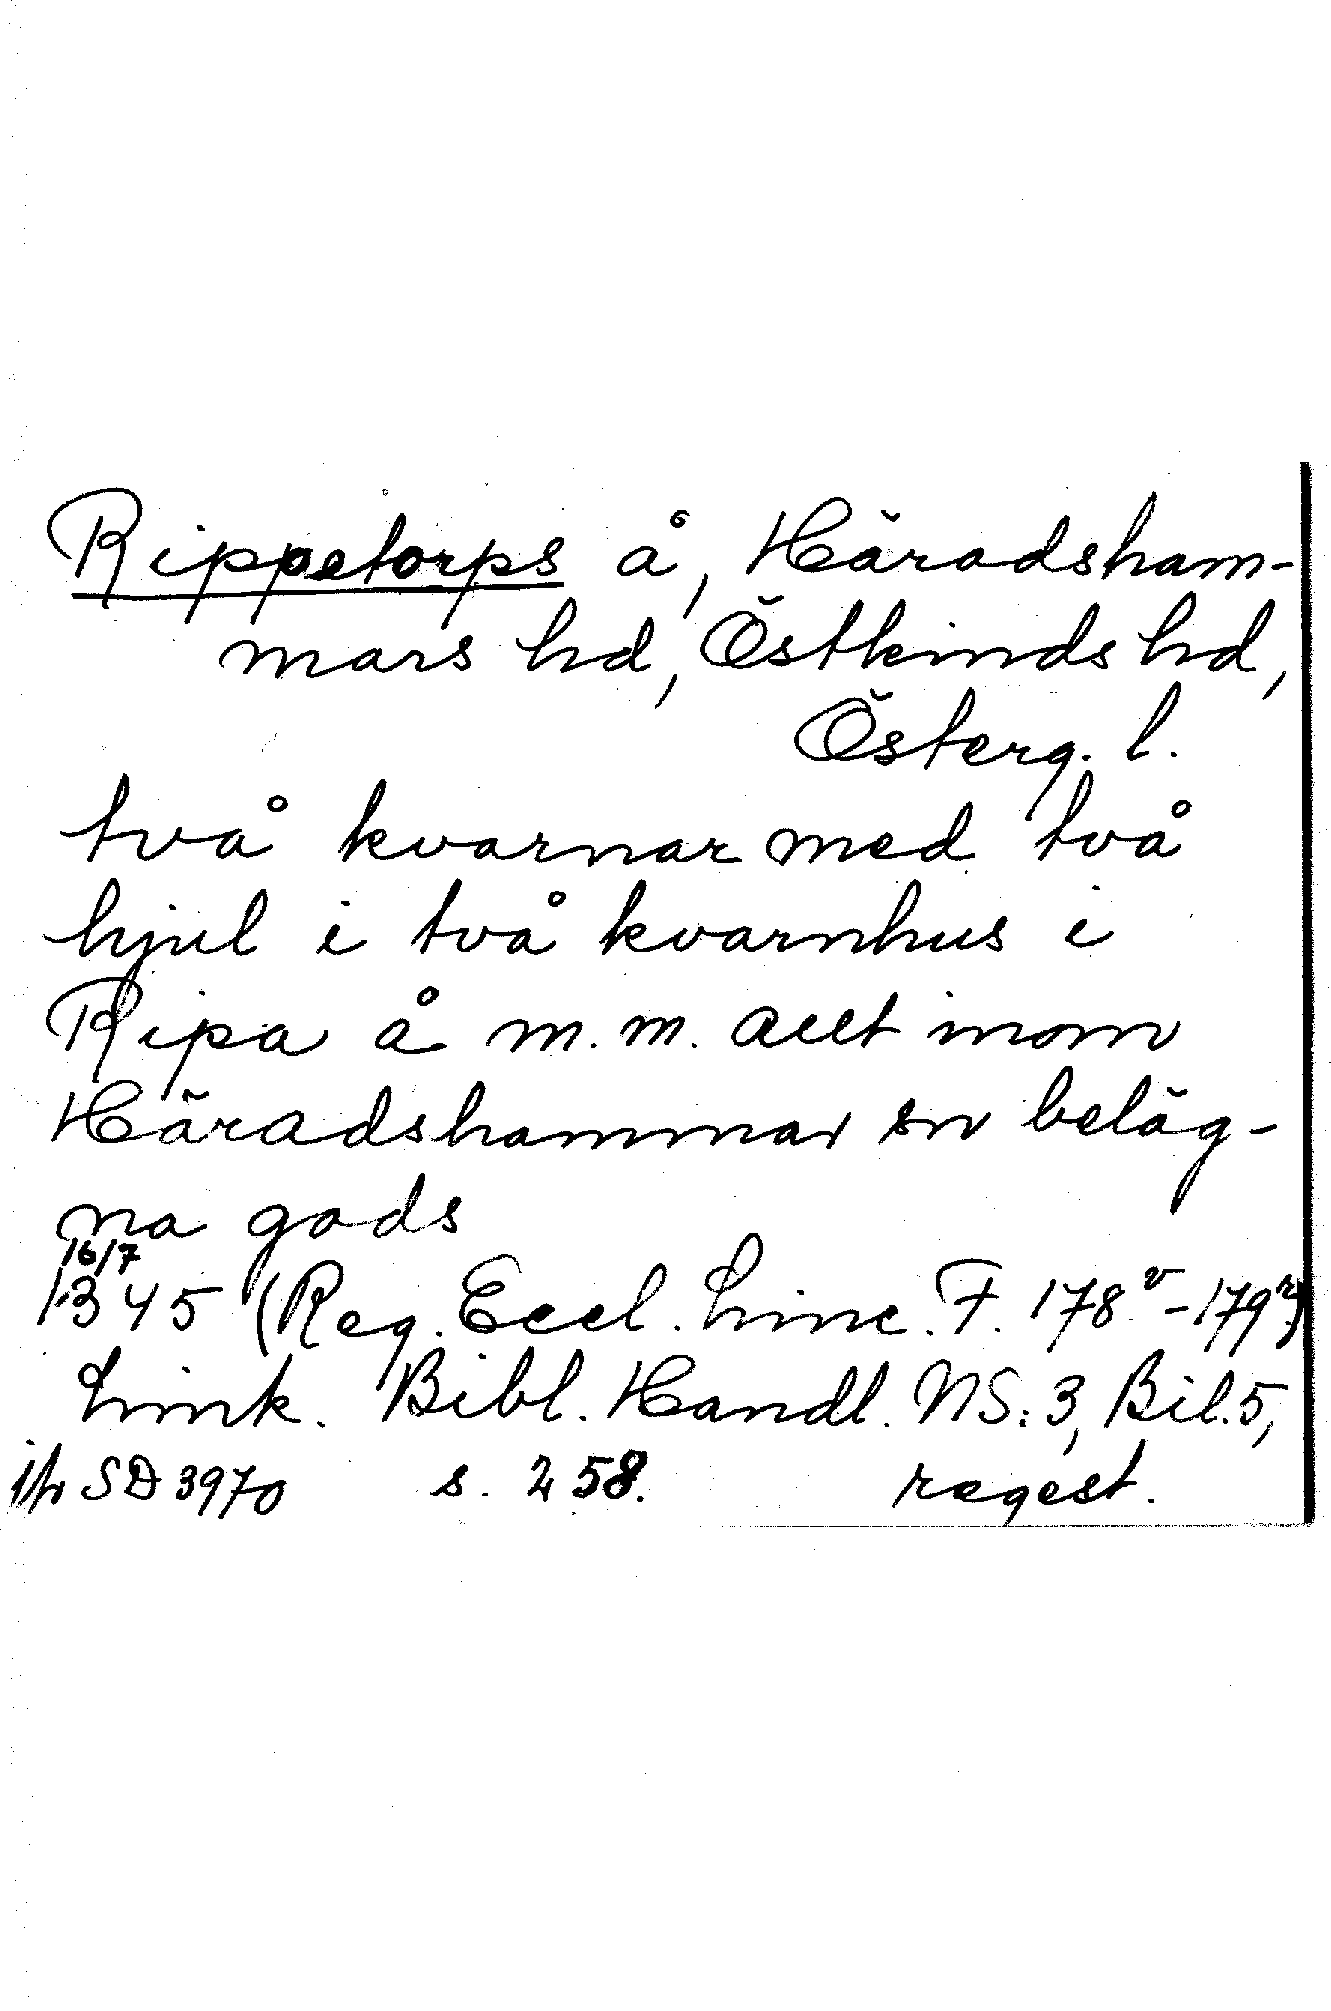 Rippetorps å, Häradsham-
mars hd, Östkinds hd,
Österg. l.
två kvarnar med två
hjul i två kvarnhus i
Ripa å m.m. allt inom
Häradshammar sn beläg-
na gods
16/7
1345 (Reg. Eccl. Linc. F. 178v-179r)
Link. Bibl. Handl. NS: 3, Bil. 5,
SD 3970 s. 258. regest.